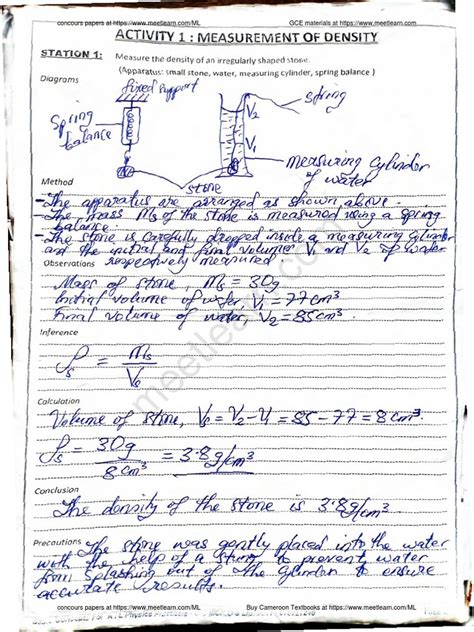 concours papers at https://www.meetlearn.com/ML GCE materials at https://www.meetlearn.com
ACTIVITY 1 : MEASUREMENT OF DENSITY
STATION 1: Measure the density of an irregularly shaped stone.
(Apparatus: small stone, water, measuring cylinder, spring balance )
Diagrams
fixed support
Spring balance
V2
V1
string
measuring cylinder of water
stone
Method
- The apparatus are arranged as shown above.
- The mass Ms of the stone is measured using a spring
balance.
- The stone is carefully dropped inside a measuring cylinder
and the initial and final volume V1 and V2 of water
Observations respectively measured
Mass of stone, Ms = 30g
Initial volume of water, V1 = 77cm³
Final volume of water, V2 = 85cm³
Inference
ρs = Ms
Vs
Calculation
Volume of stone, Vs = V2 - V1 = 85 - 77 = 8cm³
ρs = 30g = 3.8g/cm³
8cm³
Conclusion
The density of the stone is 3.8g/cm³
Precautions The stone was gently placed into the water
with the help of a string to prevent water
from splashing out of the cylinder to ensure
accurate results.
meetlearn.com
concours papers at https://www.meetlearn.com/ML Buy Cameroon Textbooks at https://www.meetlearn.com/ML